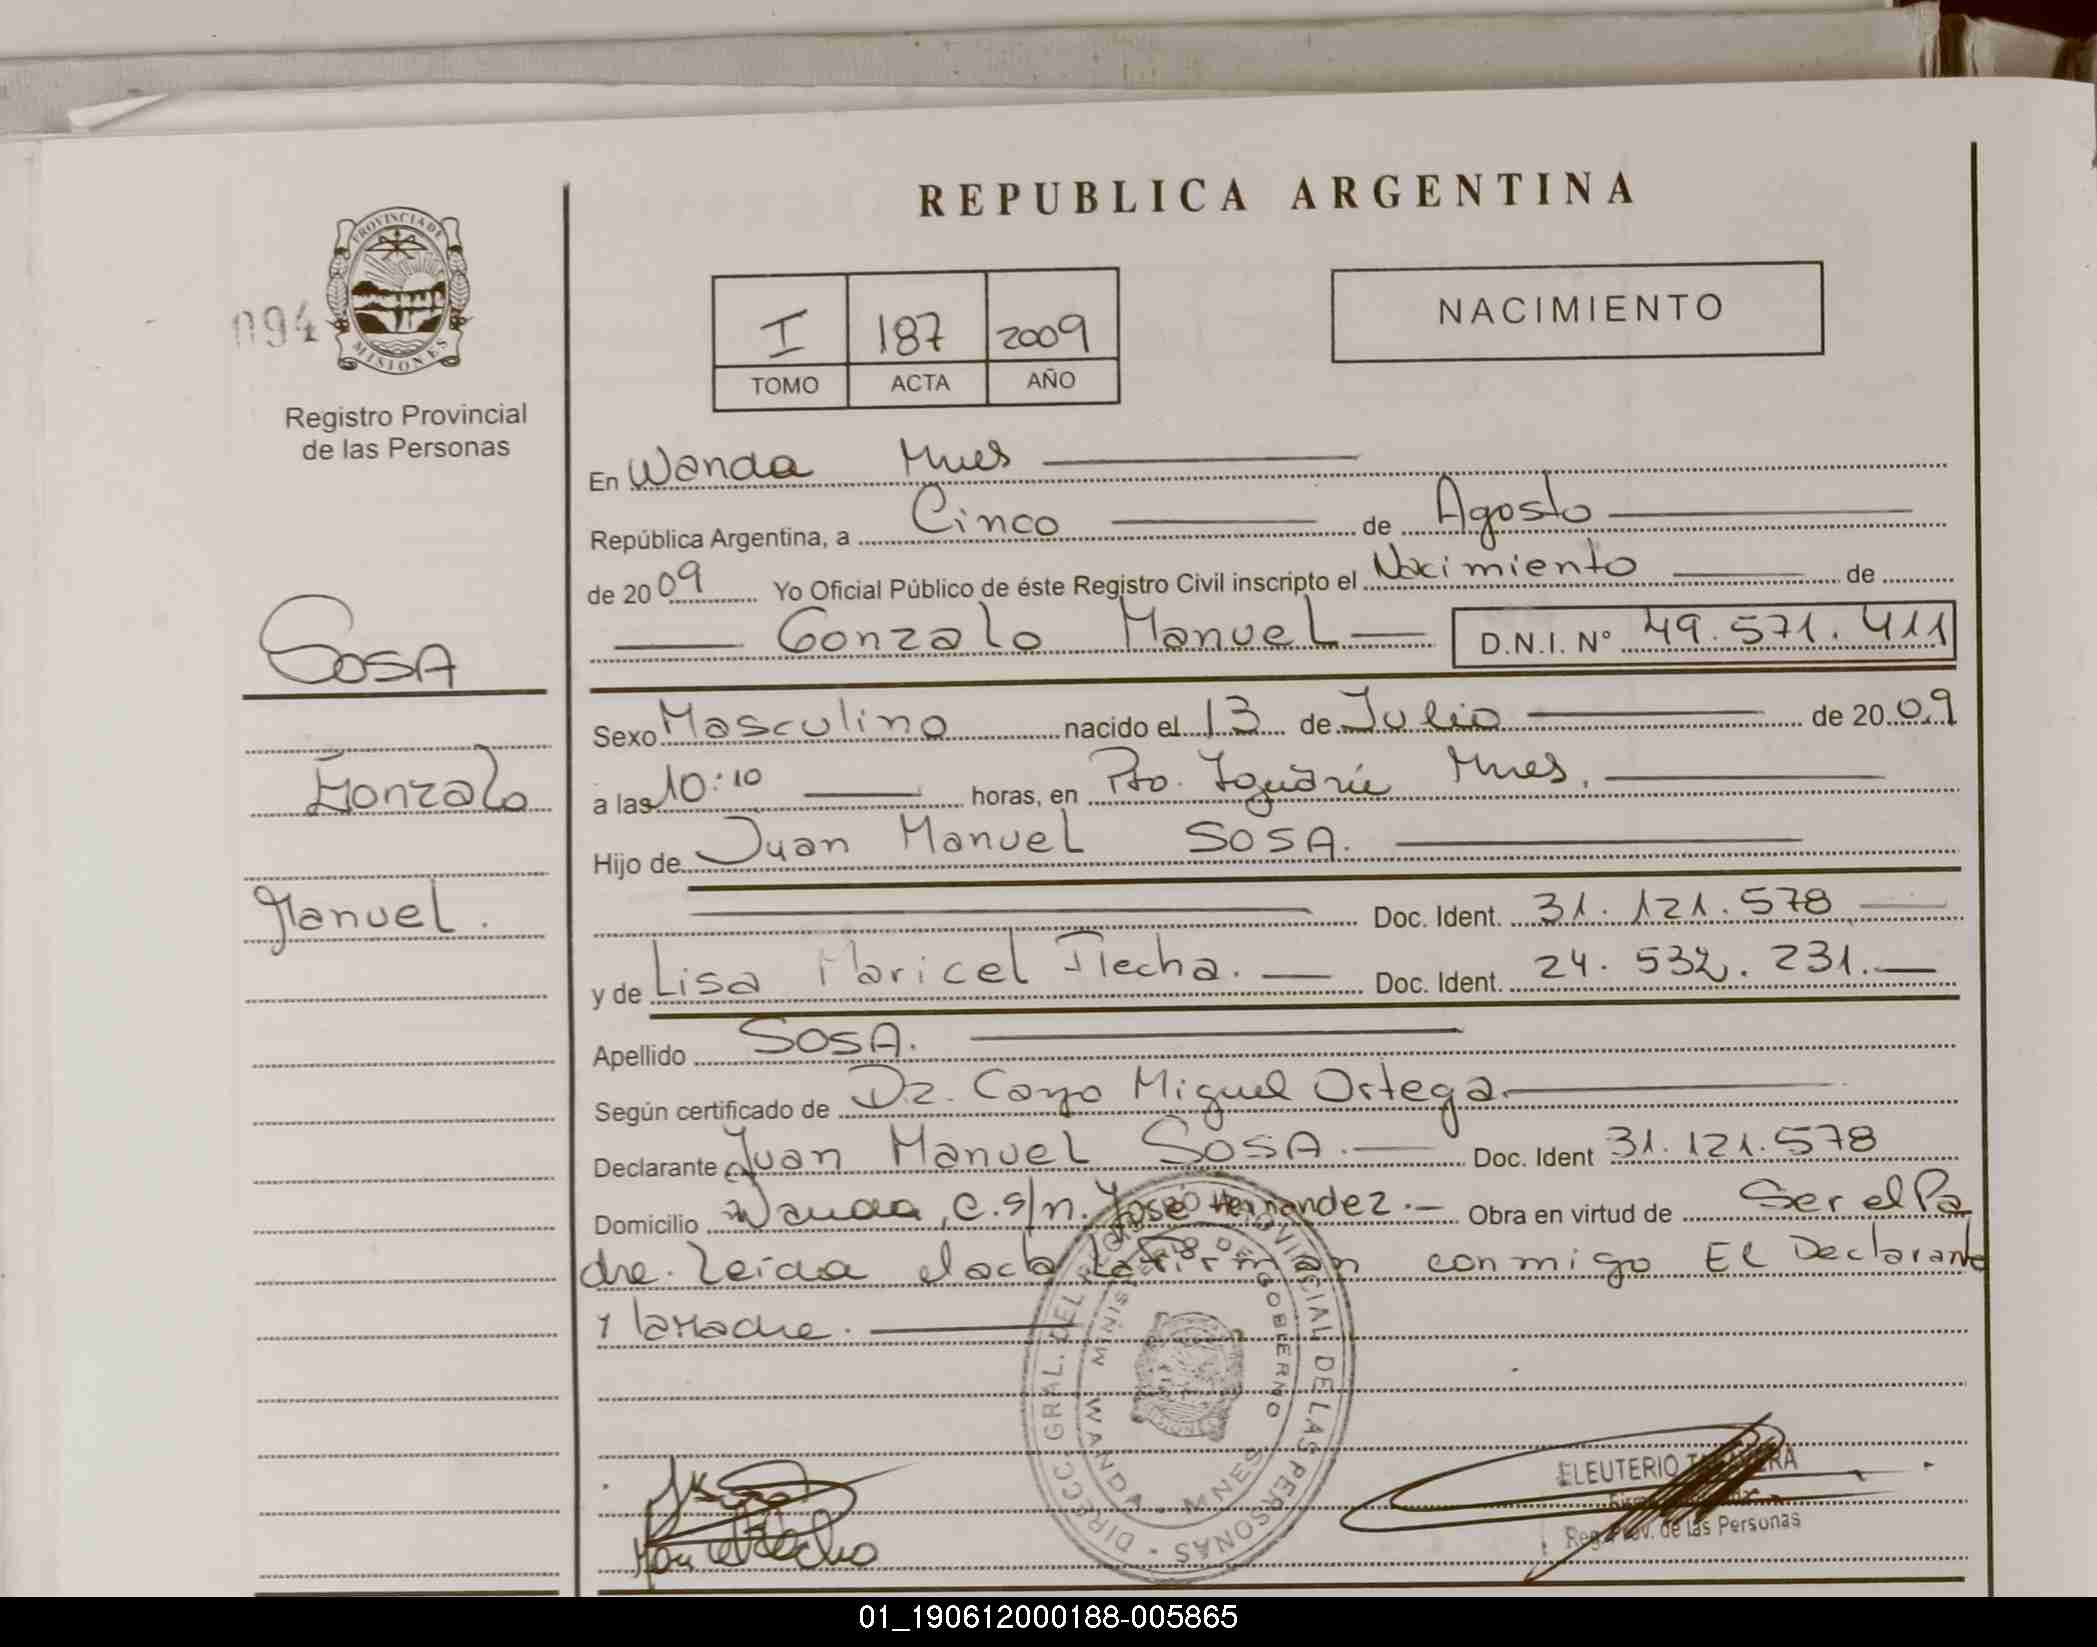 REPUBLICA ARGENTINA
PROVINCIA DE MISIONES
094
Registro Provincial
de las Personas
I 187 2009
TOMO ACTA AÑO
NACIMIENTO
En Wanda Mnes
República Argentina, a Cinco de Agosto
de 2009 Yo Oficial Público de éste Registro Civil inscripto el Nacimiento de
Gonzalo Manuel D.N.I. Nº 49.571.411
SOSA
Gonzalo
Manuel.
Sexo Masculino nacido el 13 de Julio de 2009
a las 10:10 horas, en Pto. Iguazú Mnes.
Hijo de Juan Manuel SOSA.
Doc. Ident. 31.121.578
y de Lisa Maricel Flecha. Doc. Ident. 24.532.231.
Apellido SOSA.
Según certificado de Dr. Cayo Miguel Ortega
Declarante Juan Manuel SOSA. Doc. Ident 31.121.578
Domicilio Wanda, C. s/n. José Hernandez. Obra en virtud de Ser el Pa
dre. Leida el acta la firman conmigo El Declarante
y la Madre.
DIRECC. GRAL. DEL REGISTRO PROVINCIAL DE LAS PERSONAS
MINISTERIO DE GOBIERNO
WANDA - MNES
ELEUTERIO
Reg. Prov. de las Personas
01_190612000188-005865